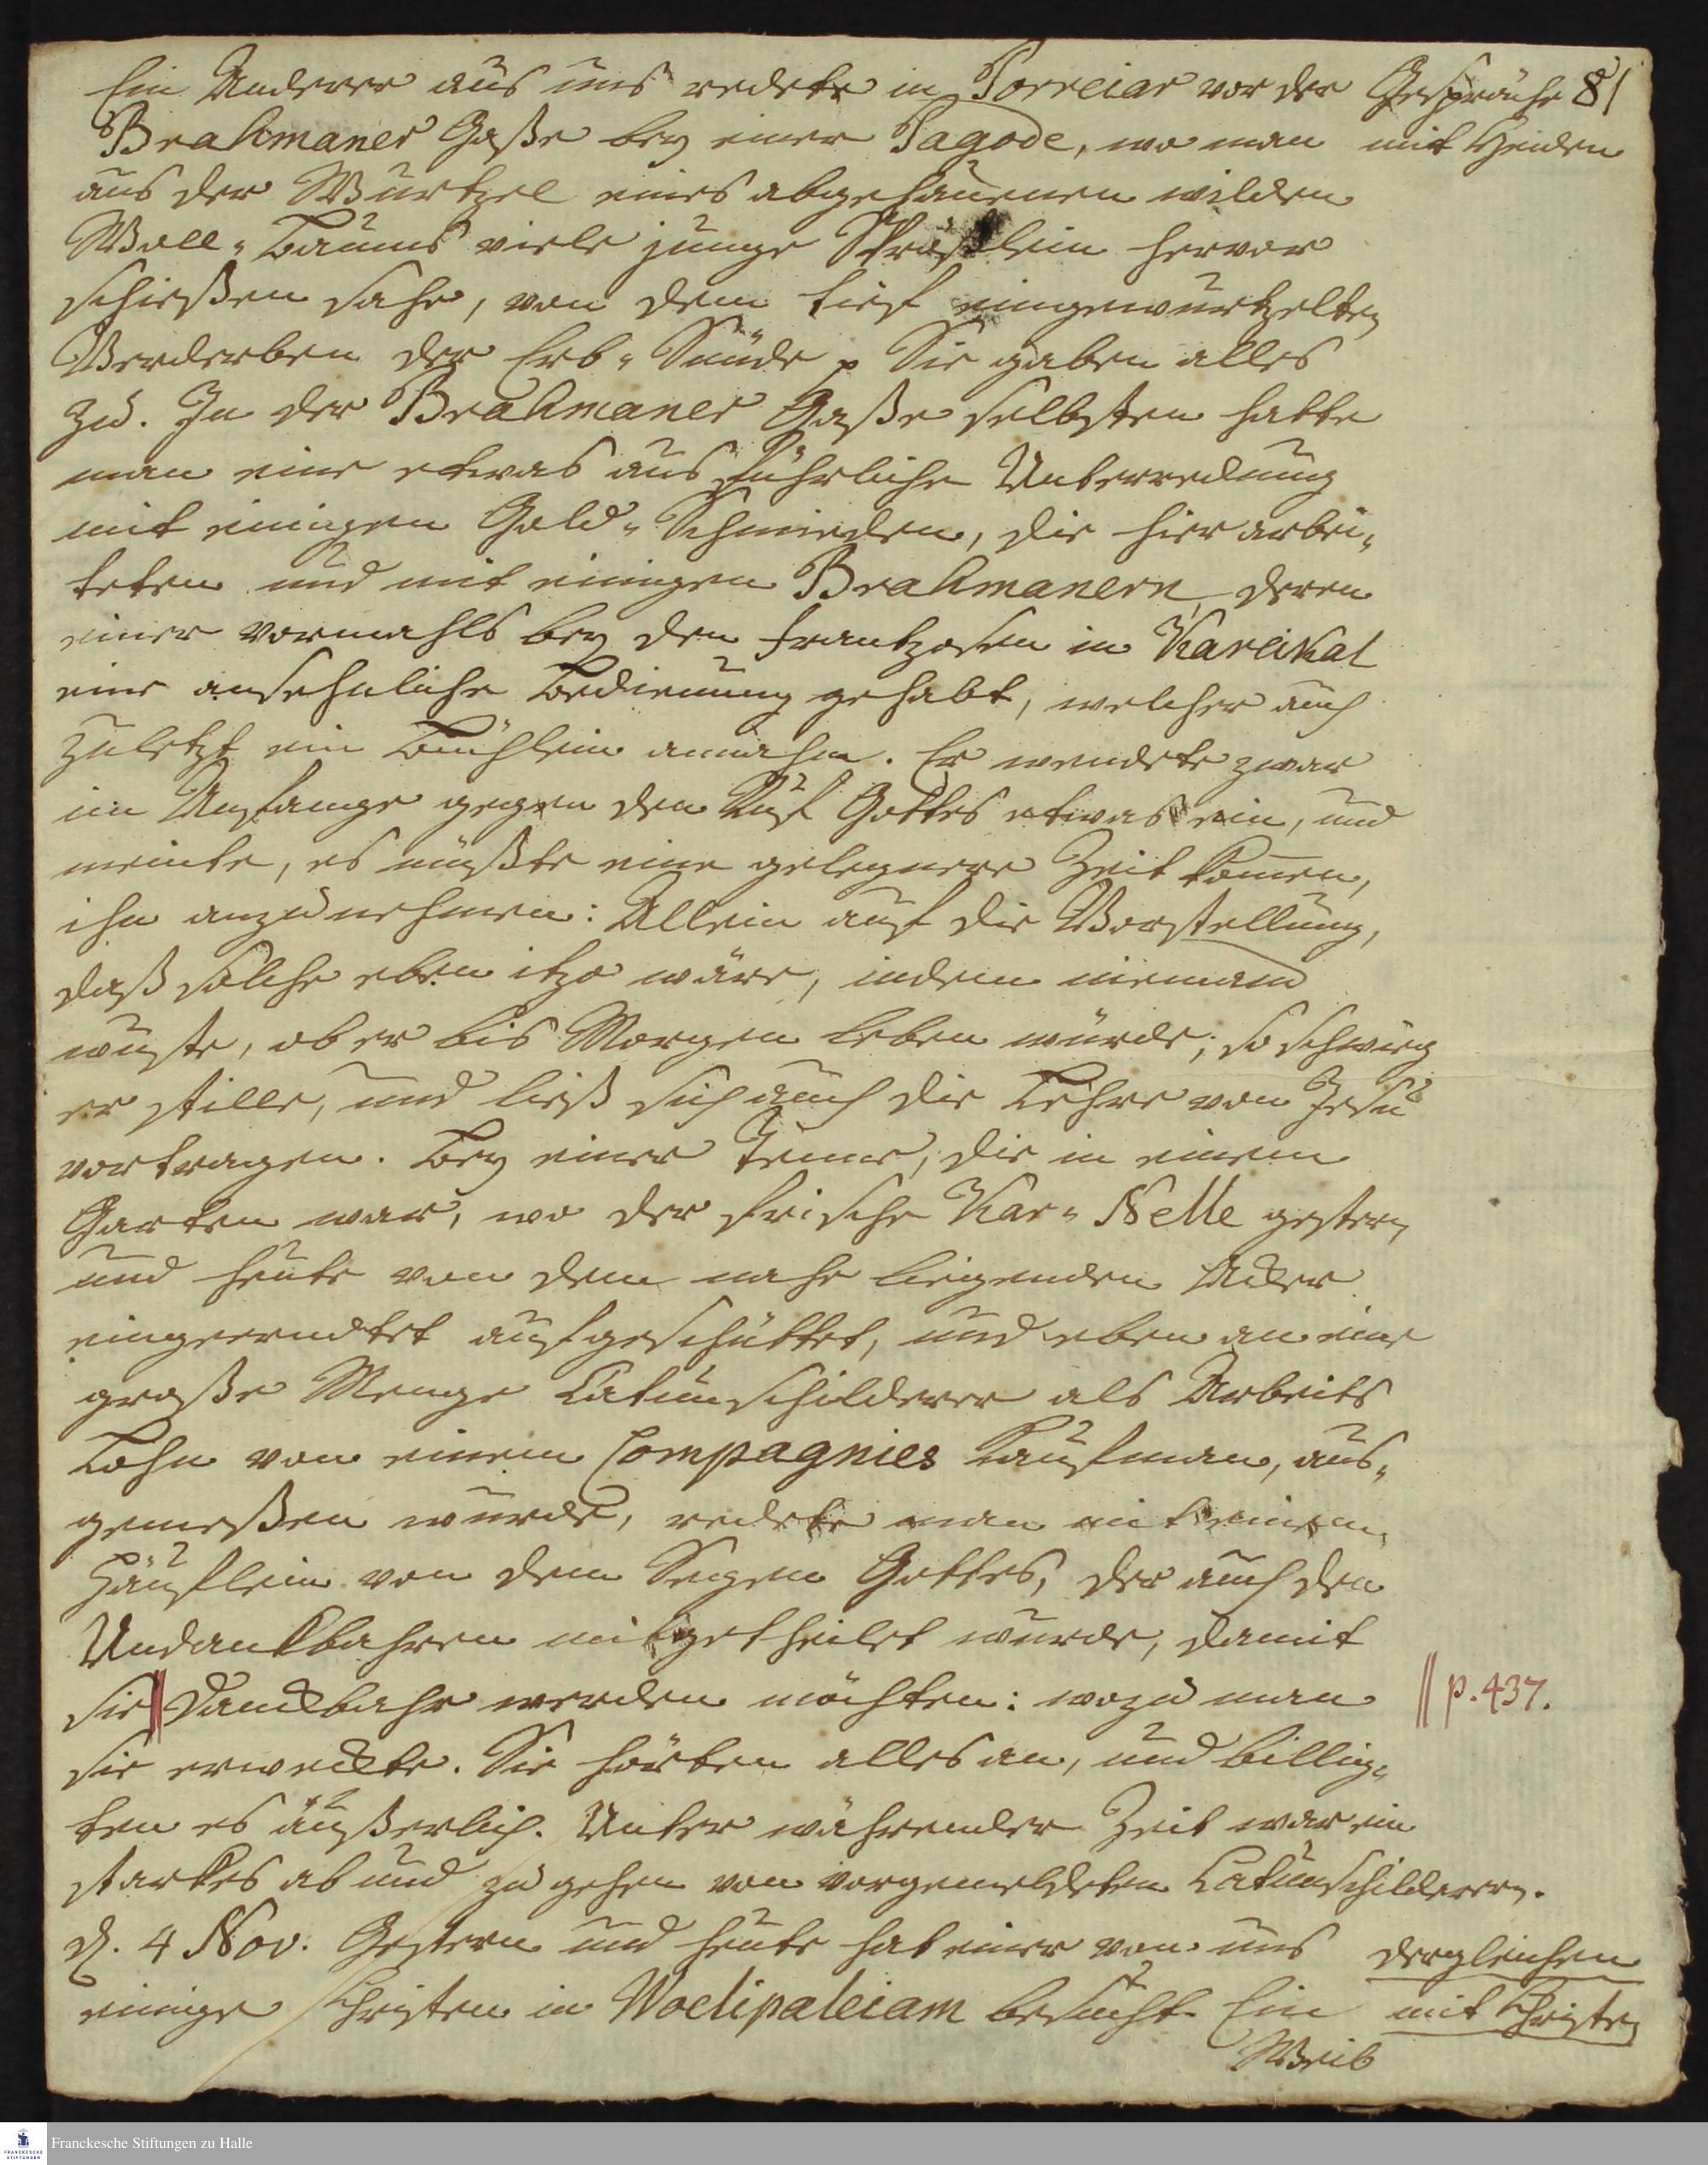 Ein Anderer aus uns redete in Porreiar vor der
Brahmaner Gaße bey einer Pagode, wo man
aus der Wurtzel eines abgehauenen wilden
Woll-Baums viele junge Sprößlein hervor
schießen sahe, von dem tief eingewurtzelten
Verderben der Erb-Sünde p Sie gaben alles
zu. In der Brahmaner Gaße selbsten hatte
man eine etwas ausführliche Unterredung
mit einigen Gold-Schmieden, die hier arbei-
teten und mit einigen Brahmanern, deren
einer vormahls bey den Frantzosen in Kareikal
eine ansehnliche Bedienung gehabt, welcher auch
zuletzt ein Büchlein annahm. Er wendete zwar
im Anfange gegen den Ruf Gottes etwas ein, und
meinte, es müßte eine gelegnere Zeit kom̄en,
ihn anzunehmen: Allein auf die Vorstellung,
daß solche eben itzo wäre, indem niemand
wuste, ob er bis Morgen leben würde; so schwieg
er stille, und ließ sich auch die Lehre von Jesu
vortragen. Bey einer Tenne, die in einem
Garten war, wo der frische Kar-Nelle gestern
und heute von dem nahe liegenden Acker
eingeerndtet aufgeschüttet, und eben an eine
große Menge Catunschilderer als Arbeits
Lohn von einem Compagnies Kaufman, aus-
gemeßen wurde, redete man mit einem
Häuflein von dem Segen Gottes, der auch den
Undankbahren mitgetheilet wurde, damit
sie || Danckbahr werden möchten: wozu man
sie erweckte. Sie hörten alles an, und billig-
ten es äußerlich. Unter währender Zeit war ein
starkes ab und zu gehen von vorgemeldeten Catunschilderern.
d. 4 Nov. Gestern und heute hat einer von uns
einige Christen in Woelipaleiam besucht. Ein
Weib
Gespräche 81
mit Heiden
|| p. 437.
dergleichen
mit Christen
Franckesche Stiftungen zu Halle
FRANCKESCHE
STIFTUNGEN